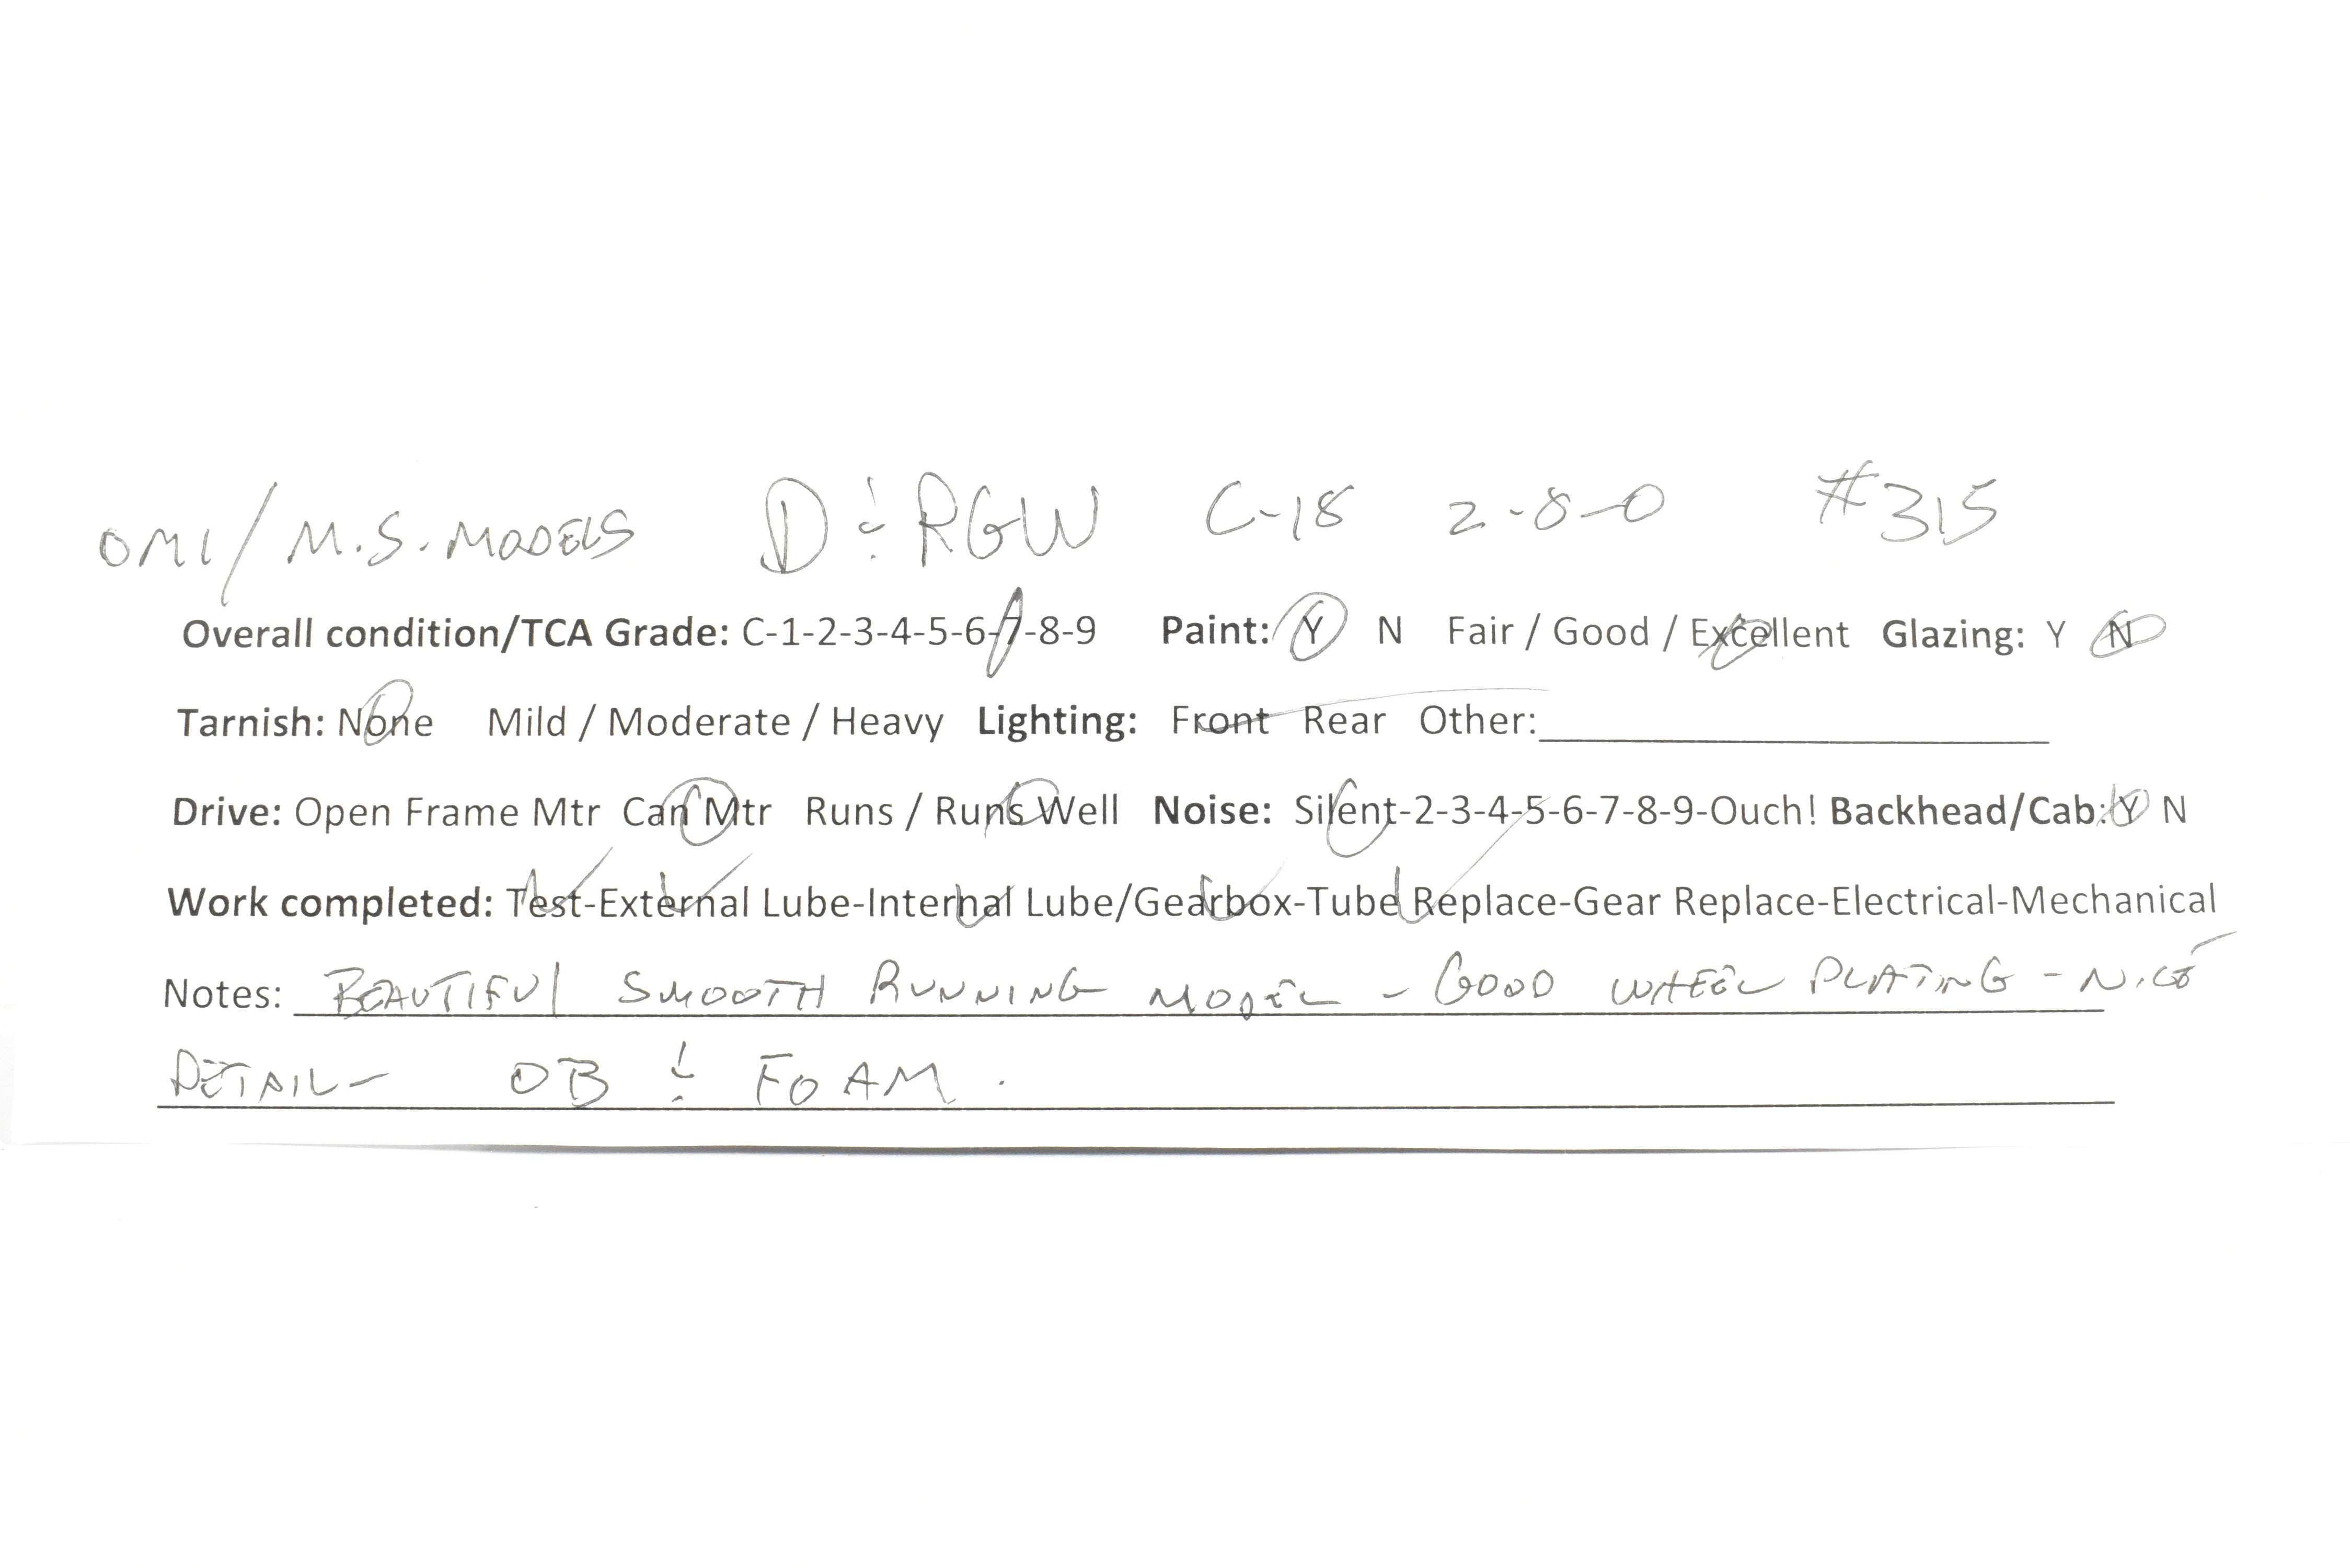 OMI/M.S.MODELS D&RGW C-18 2-8-0 #315
Overall condition/TCA Grade: C-1-2-3-4-5-6-7-8-9 Paint: Y N Fair / Good / Excellent Glazing: Y N
Tarnish: None Mild / Moderate / Heavy Lighting: Front Rear Other:
Drive: Open Frame Mtr Can Mtr Runs / Runs Well Noise: Silent-2-3-4-5-6-7-8-9-Ouch! Backhead/Cab: Y N
Work completed: Test-External Lube-Internal Lube/Gearbox-Tube Replace-Gear Replace-Electrical-Mechanical
Notes: BEAUTIFUL SMOOTH RUNNING MODEL - GOOD WHEEL PLATING - NICE
DETAIL - OB & FOAM.